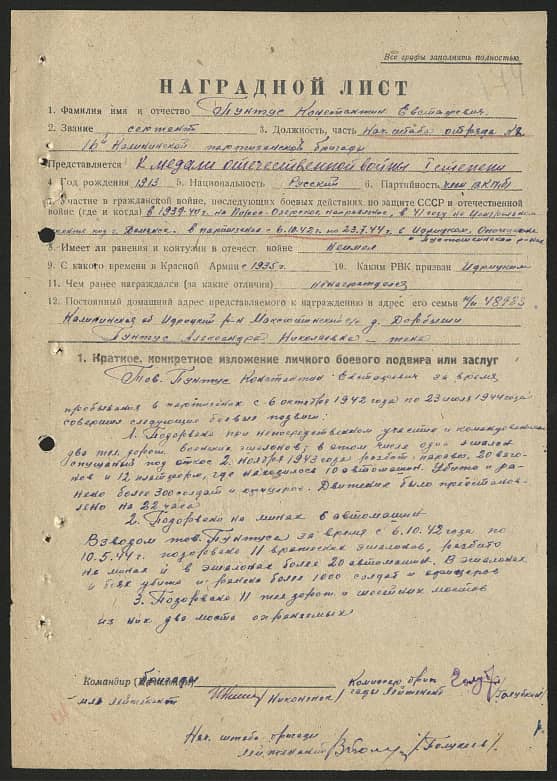 Все графы заполнять полностью.
НАГРАДНОЙ ЛИСТ
1. Фамилия имя и отчество Пунтус Константин Евстафевич
2. Звание сержант 3. Должность, часть Нач. штаба отряда №2
16й Калининской партизанской бригады
Представляется К медали отечественной войны I степени
4 Год рождения 1913 5. Национальность Русский 6. Партийность член ВКП/б/
7. Участие в гражданской войне, последующих боевых действиях по защите СССР и отечественной
войне (где и когда) в 1939-40г. на направление, в 41 году на Центральном
в партизанке с 6.10.42г. по 23.7.44г. в Идрицком,
8. Имеет ли ранения и контузии в отечест. войне Неимел
9. С какого времени в Красной Армии с 1935г. 10. Каким РВК призван Идрицким
11. Чем ранее награждался (за какие отличия) ненаграждался
12. Постоянный домашний адрес представляемого к награждению и адрес его семьи
Калининская об. Идрицкий р-н с/с д.
Пунтус Александра Николаевна - жена
1. Краткое, конкретное изложение личного боевого подвига или заслуг
Тов. Пунтус Константин Евстафевич за время
пребывания в партизанах с 6 октября 1942 года по 23 июля 1944 года
совершил следующие боевые подвиги:
1. Подорвано при непосредственном участие и командовании
два жел. дорож. военных эшалонов; в этом числе один эшалон
спущеный под откос 2 Ноября 1943 года разбит: паравоз, 20 ваго-
нов и 12 платформ, где находилось 10 автомашин. Убито и ра-
нено более 300 солдат и офицеров. Движение было приостанов-
лено на 22 часа
2. Подорвано на минах 8 автомашин
Взводом тов. Пунтуса за время с 6.10.42 года по
10.5.44г. подорвано 11 вражеских эшалонов, разбито
на минах и в эшалонах более 20 автомашин. В эшалонах
и боях убито и ранено более 1000 солдат и офицеров
3. Подорвано 11 жел дорож. и шоссейных мостов
из них два моста охраняемых
Командир бригады
мл. лейтенант /Никоненок/
Комиссар бри-
гады лейтенант
Нач. штаба бригады
лейтенант